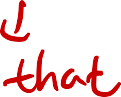 ↓
that